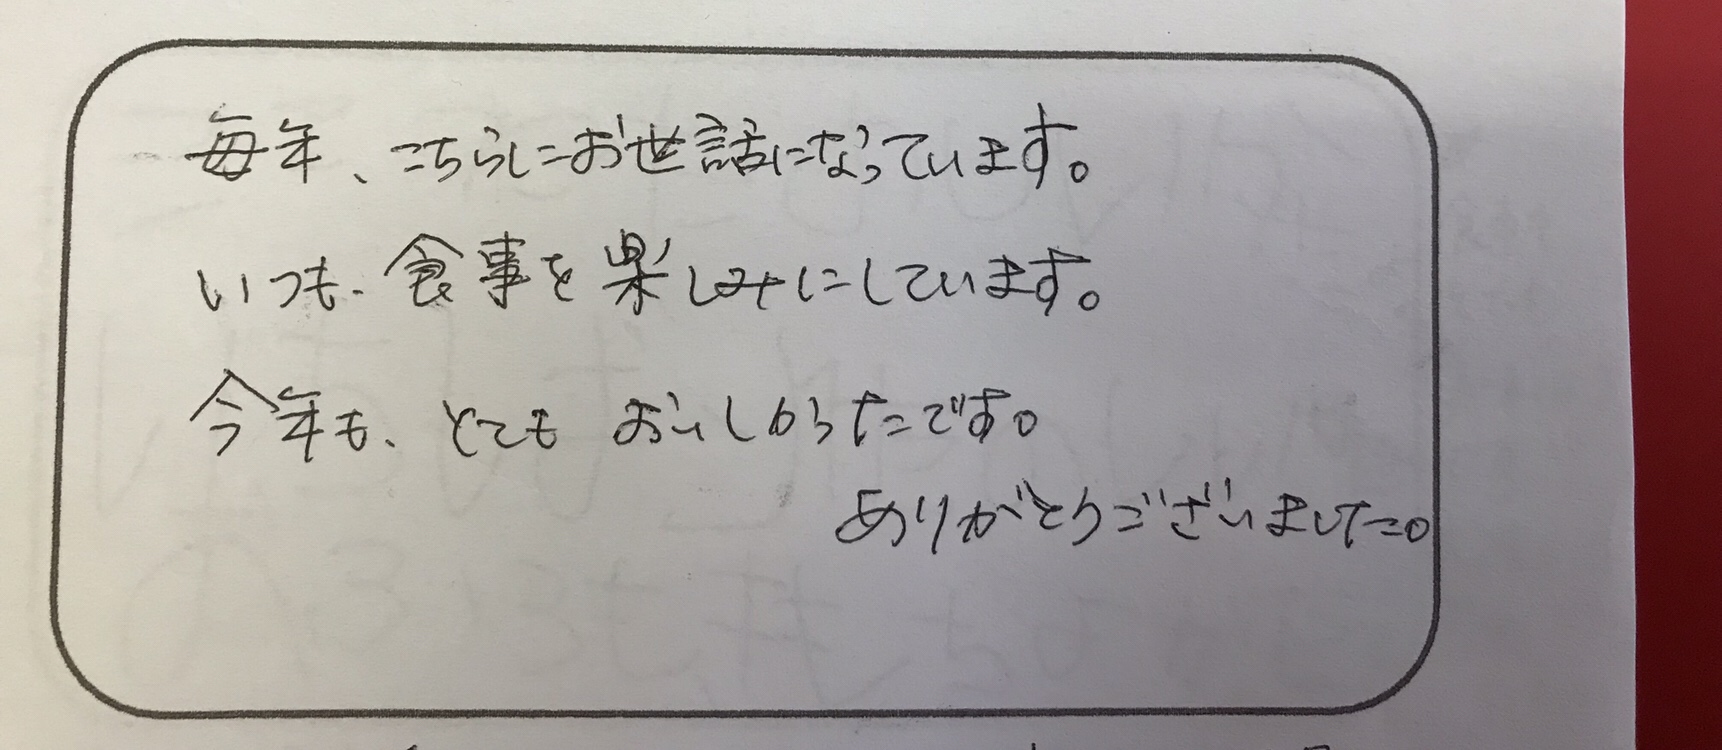 毎年、こちらにお世話になっています。
いつも、食事を楽しみにしています。
今年も、とても おいしかったです。
ありがとうございました。